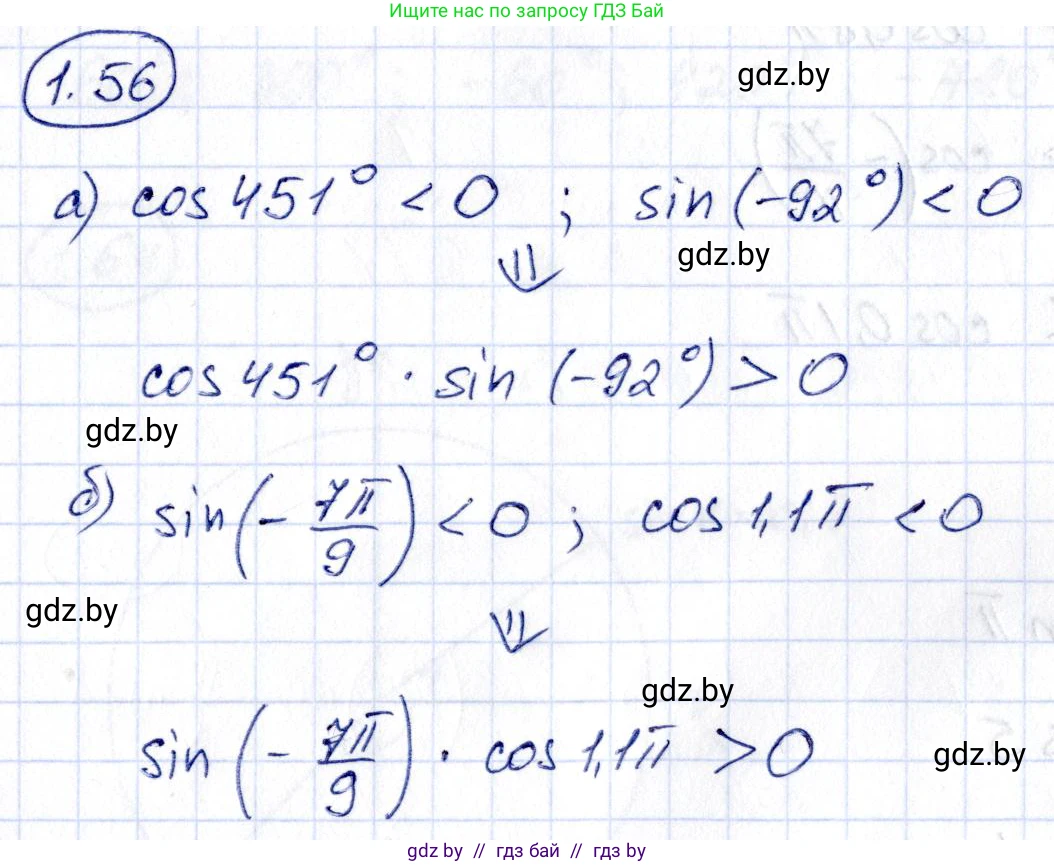 Ищите нас по запросу ГДЗ Бай
1.56
gdz.by
а) cos 451° < 0 ; sin (-92°) < 0
gdz.by
⇓
cos 451° · sin (-92°) > 0
gdz.by
б) sin(-7π/9) < 0 ; cos 1,1π < 0
gdz.by
⇓
gdz.by
sin(-7π/9) · cos 1,1π > 0
gdz.by
gdz.by // гдз бай // гдз by